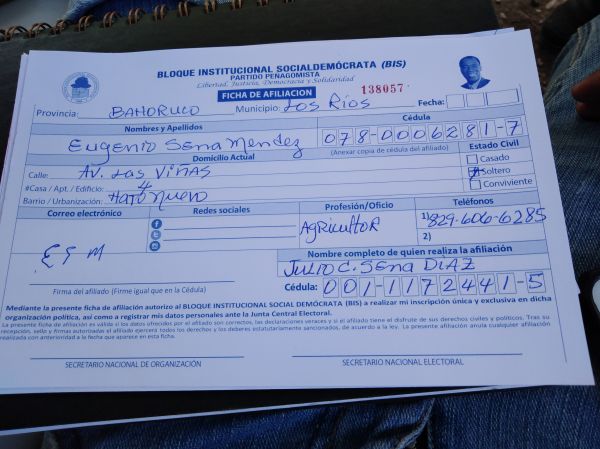 BLOQUE INSTITUCIONAL SOCIALDEMÓCRATA (BIS)
PARTIDO PEÑAGOMISTA
Libertad, Justicia, Democracia y Solidaridad
FICHA DE AFILIACION 138057
Provincia: BAHORUCO Municipio: LOS RÍOS Fecha:
Nombres y Apellidos Cédula
Eugenio Sena Mendez 078-0006281-7
(Anexar copia de cédula del afiliado)
Domicilio Actual Estado Civil
Calle: AV. LAS VIÑAS Casado
#Casa / Apt. / Edificio: 4 Soltero
Barrio / Urbanización: HATO NUEVO Conviviente
Correo electrónico Redes sociales Profesión/Oficio Teléfonos
AGRICULTOR 1) 829-606-6285
2)
E S M
Nombre completo de quien realiza la afiliación
JULIO C. SENA DIAZ
Firma del afiliado (Firme igual que en la Cédula) Cédula: 001-1172441-5
Mediante la presente ficha de afiliación autorizo al BLOQUE INSTITUCIONAL SOCIAL DEMÓCRATA (BIS) a realizar mi inscripción única y exclusiva en dicha
organización política, así como a registrar mis datos personales ante la Junta Central Electoral.
La presente ficha de afiliación es válida si los datos ofrecidos por el afiliado son correctos, las declaraciones veraces y si el titular tiene el disfrute de sus derechos civiles y políticos. Tras su
recepción, sello y firmas autorizadas el afiliado ejercerá todos los derechos y los deberes estatutariamente sancionados, de acuerdo a la ley. La presente afiliación anula cualquier afiliación
realizada con anterioridad a la fecha que aparece en esta ficha.
SECRETARIO NACIONAL DE ORGANIZACIÓN SECRETARIO NACIONAL ELECTORAL